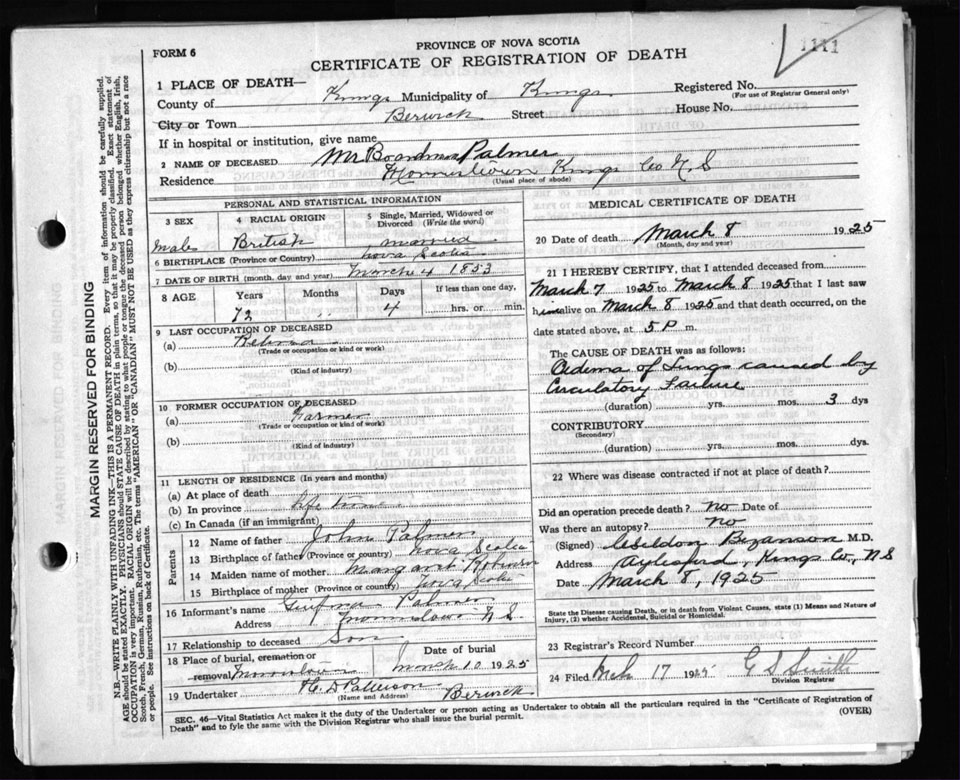 FORM 6
PROVINCE OF NOVA SCOTIA
CERTIFICATE OF REGISTRATION OF DEATH
1111
1 PLACE OF DEATH—
Registered No.
(For use of Registrar General only)
County of Kings Municipality of Kings
City or Town Berwick Street House No.
If in hospital or institution, give name
2 NAME OF DECEASED Mr Boardman Palmer
Residence Morristown Kings Co N. S
(Usual place of abode)
PERSONAL AND STATISTICAL INFORMATION
3 SEX male
4 RACIAL ORIGIN British
5 Single, Married, Widowed or Divorced (Write the word) married
6 BIRTHPLACE (Province or Country) Nova Scotia
7 DATE OF BIRTH (month, day and year) March 4 1853
8 AGE Years Months Days If less than one day,
72 4 hrs. or min.
9 LAST OCCUPATION OF DECEASED
(a) Retired
(Trade or occupation or kind or work)
(b)
(Kind of industry)
10 FORMER OCCUPATION OF DECEASED
(a) Farmer
(Trade or occupation or kind or work)
(b)
(Kind of industry)
11 LENGTH OF RESIDENCE (In years and months)
(a) At place of death
(b) In province life time
(c) In Canada (if an immigrant)
Parents
12 Name of father John Palmer
13 Birthplace of father (Province or country) Nova Scotia
14 Maiden name of mother Margaret Robinson
15 Birthplace of mother (Province or country) Nova Scotia
16 Informant's name Palmer
Address Morristown N S
17 Relationship to deceased Son
18 Place of burial, cremation or removal Morristown
Date of burial March 10 1925
19 Undertaker H. D Patterson Berwick
(Name and Address)
MEDICAL CERTIFICATE OF DEATH
20 Date of death March 8 1925
(Month, day and year)
21 I HEREBY CERTIFY, that I attended deceased from
March 7 1925 to March 8 1925 that I last saw
him alive on March 8 1925 and that death occurred, on the
date stated above, at 5 P m.
The CAUSE OF DEATH was as follows:
Œdema of Lungs caused by
Circulatory Failure
(duration) yrs. mos. 3 dys
CONTRIBUTORY
(Secondary)
(duration) yrs. mos. dys.
22 Where was disease contracted if not at place of death?
Did an operation precede death? No Date of
Was there an autopsy? No
(Signed) Weldon Bezanson M.D.
Address Aylesford, Kings Co., N S
Date March 8, 1925
State the Disease causing Death, or in death from Violent Causes, state (1) Means and Nature of
Injury, (2) whether Accidental, Suicidal or Homicidal.
23 Registrar's Record Number
24 Filed Mch 17 1925 G S Smith
Division Registrar
SEC. 46—Vital Statistics Act makes it the duty of the Undertaker or person acting as Undertaker to obtain all the particulars required in the "Certificate of Registration of
Death" and to fyle the same with the Division Registrar who shall issue the burial permit.
(OVER)
MARGIN RESERVED FOR BINDING
N.B.—WRITE PLAINLY WITH UNFADING INK—THIS IS A PERMANENT RECORD. Every item of information should be carefully supplied.
AGE should be stated EXACTLY. PHYSICIANS should STATE CAUSE OF DEATH in plain terms, so that it may be properly classified. Exact statement of
OCCUPATION is very important. RACIAL ORIGIN will be described by stating to what people or tongue the deceased person belonged whether English, Irish,
Scotch, French, German, Russian, Ruthenian, etc. The terms "AMERICAN" OR "CANADIAN" MUST NOT BE USED as they express citizenship but not a race
or people. See instructions on back of Certificate.